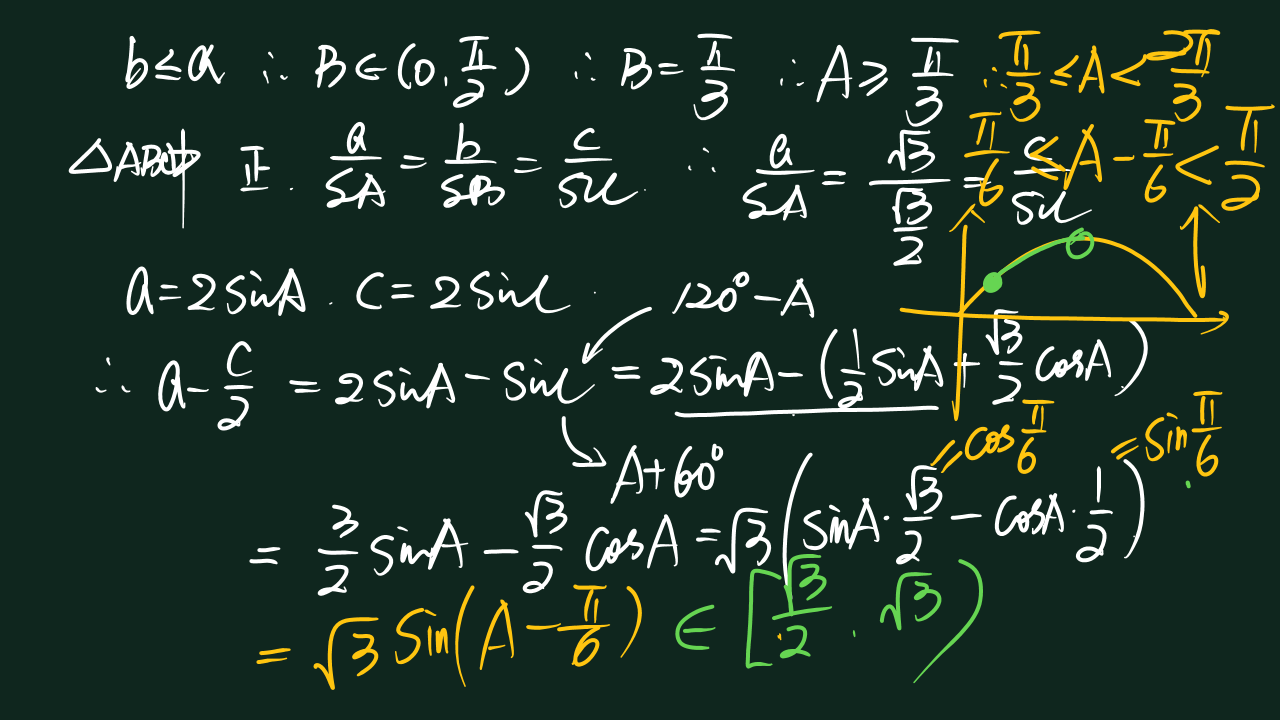 b≤a ∴ B∈(0, π/2) ∴ B=π/3 ∴ A≥π/3 ∴ π/3≤A<2π/3
△ABC中 正. a/SA = b/SB = c/SC. ∴ a/SA = √3/(√3/2) = c/SC
π/6≤A-π/6<π/2
a=2sinA. c=2sinC.
120°-A
∴ a-c/2 = 2sinA-sinC = 2sinA-(1/2 sinA+√3/2 cosA)
A+60°
=cos π/6 =sin π/6
= 3/2 sinA - √3/2 cosA = √3(sinA·√3/2 - cosA·1/2)
= √3 sin(A-π/6) ∈ [√3/2, √3)